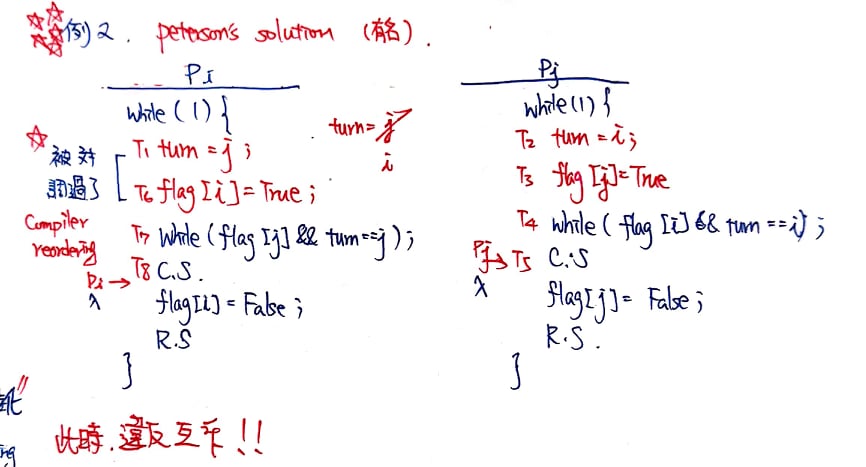 例2. peterson's solution (有名).
Pi
while (1) {
T1 turn = j ;
T6 flag [i] = True ;
T7 While ( flag [j] && turn==j ) ;
T8 C.S.
flag[i] = False ;
R.S
}
被対調過了
Compiler reordering
Pi → 入
turn = j
i
Pj
while (1) {
T2 turn = i ;
T3 flag [j] = True
T4 while ( flag [i] && turn == i) ;
Pj → T5 C.S
入
flag[j] = False ;
R.S.
}
此時, 違反互斥 !!